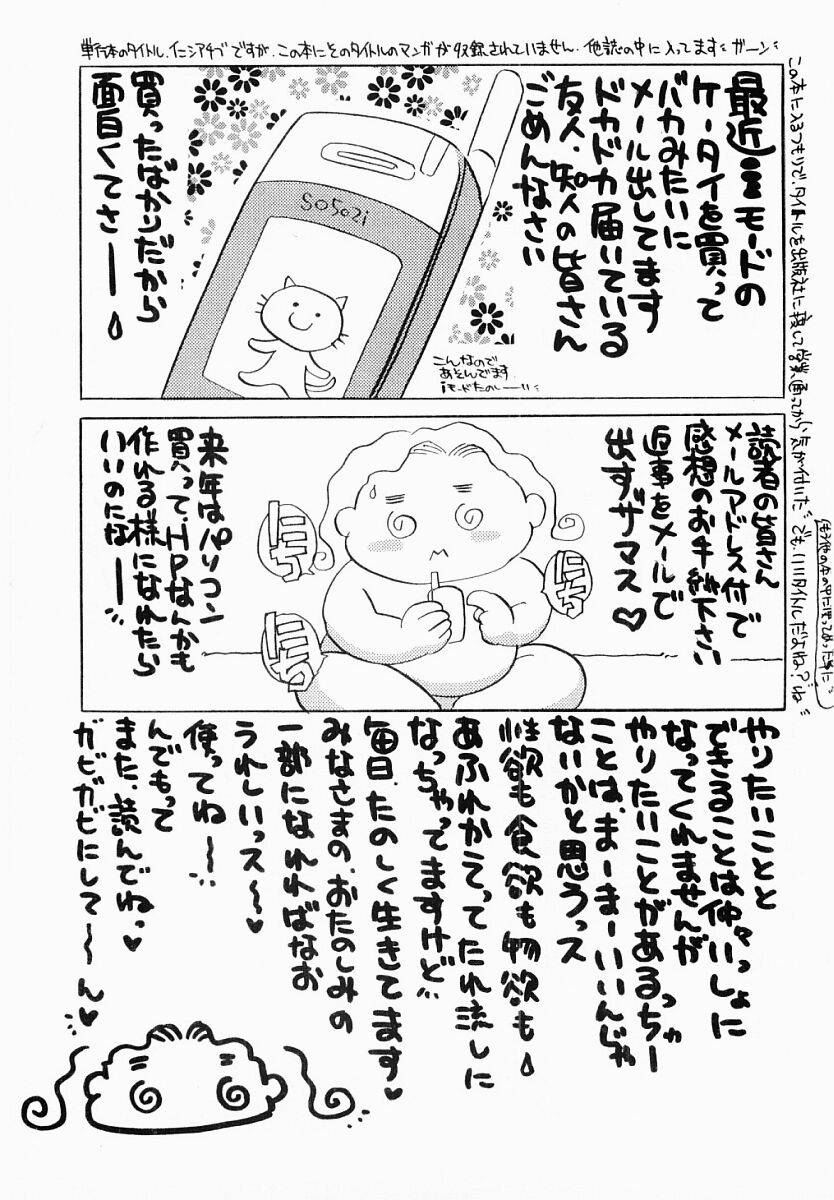 単行本のタイトル、イニシアチブですが、この本にそのタイトルのマンガが収録されていません。他誌の中に入ってます ガーン
この本に入るつもりで、タイトルを出版社に渡して営業通ってから気が付いた でも、いいタイトルだよね?ね
最近iモードの
ケータイを買って
バカみたいに
メール出してます
ドカドカ届いている
友人、知人の皆さん
ごめんなさい
買ったばかりだから
面白くてさー
SO502i
こんなので
あそんでます
iモードたのしー
読者の皆さん
メールアドレス付で
感想のお手紙下さい
返事をメールで
出すザマス♡
にちにち
にちにち
にちにち
来年はパソコン
買って、HPなんかも
作れる様になれたら
いいのになー
やりたいことと
できることは仲々いっしょに
なってくれませんが
やりたいことがあるっちゃー
ことは、まーまーいいんじゃ
ないかと思うっス
性欲も食欲も物欲も
あふれかえってたれ流しに
なっちゃってますけど
毎日、たのしく生きてます♥
みなさまの、おたのしみの
一部になれればなお
うれしいっス〜♥
使ってね〜
んでもって
また、読んでねっ♥
ガビガビにして〜ん♥